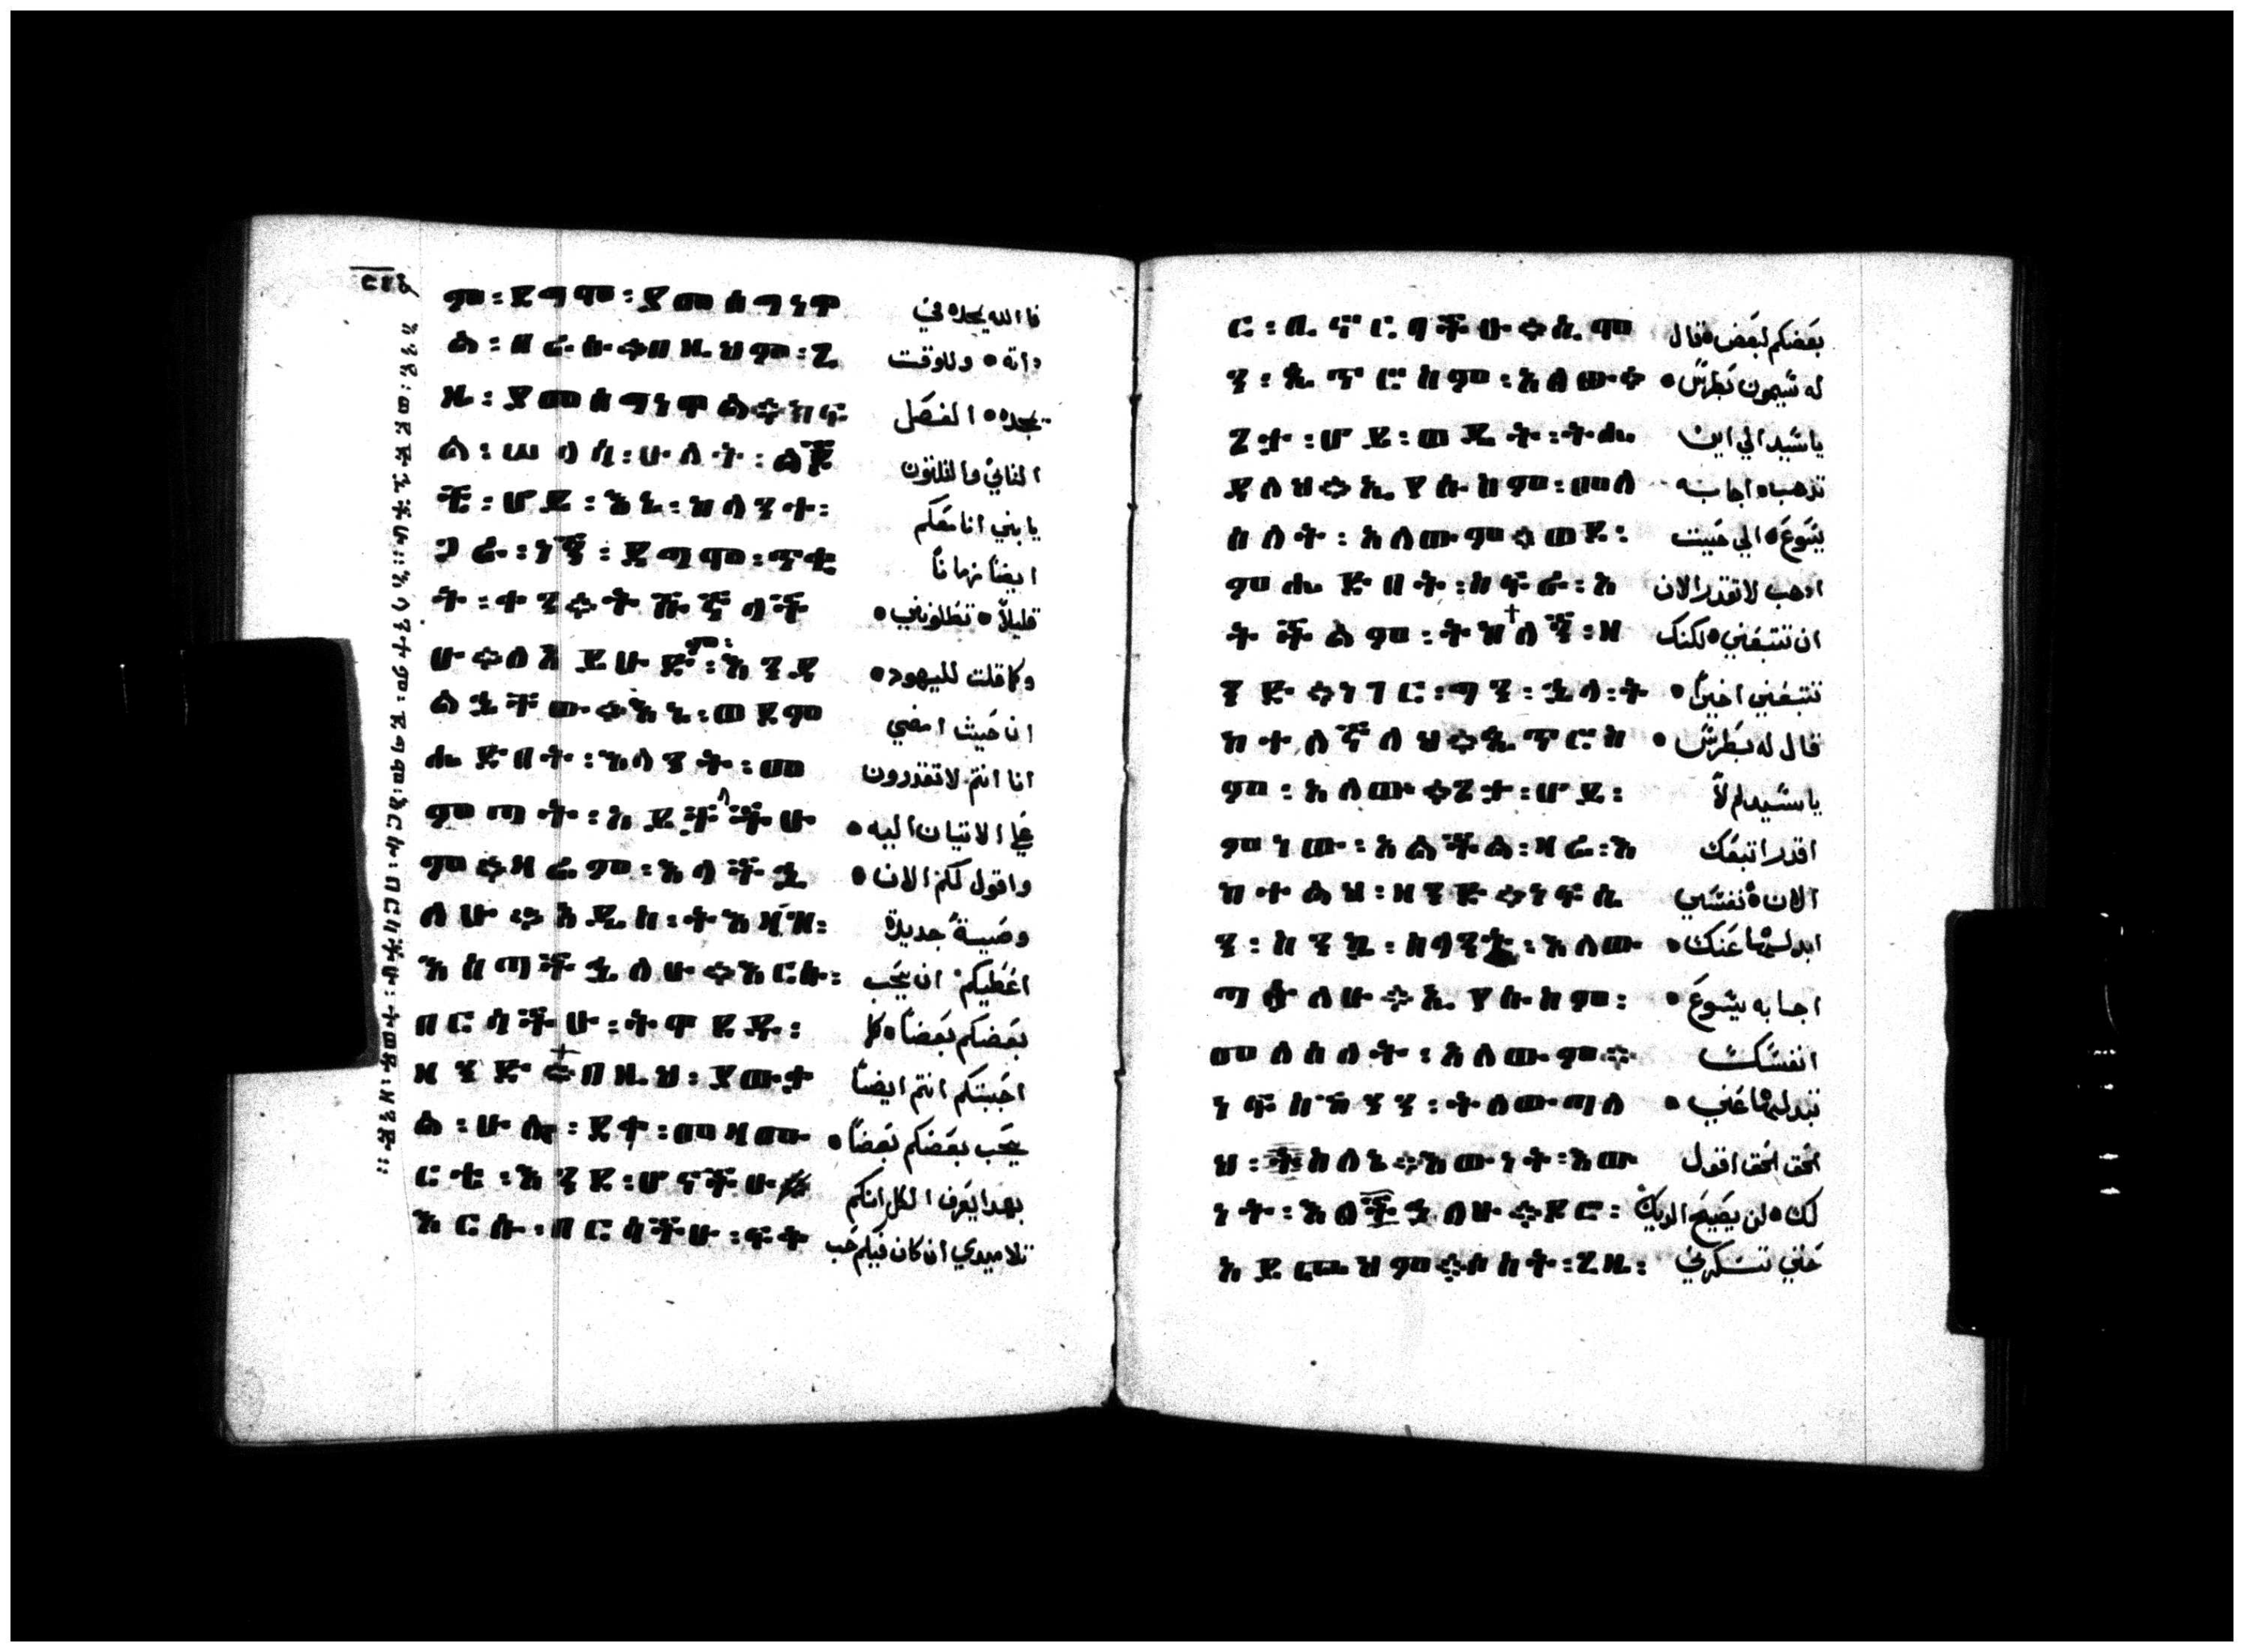 ም፡ ደግሞ፡ ያመሰግነዋ فاالله يمجده في
ል፡ በራሱ፨ በዚህም፡ ጊ داته • وللوقت
ዜ፡ ያመሰግነዋል፨ ክፍ يمجده • الفصل
ል፡ ሠላሳ፡ ሁለት፡ ልጆ الثاني والثلثون
ች፡ ሆይ፡ እኔ፡ ከላንተ፡ يا بني انا معكم
ጋራ፡ ነኝ፡ ደግሞ፡ ጥቂ ايضا زمانا
ት፡ ቀን፨ ትሹኛላች قليلا • تطلبوني •
ሁ፨ ለአይሁድም፡ እንዲ وكما قلت لليهود •
ልኋቸው፨ እኔ፡ ወደም ان حيث امضي
ሔድበት፡ እላንት፡ መ انا انتم لا تقدرون
ምጣት፡ አይቻላችሁ علي الاتيان اليه •
ም፨ ዛሬም፡ እላችኋ واقول لكم الان •
ለሁ፨ አዲስ፡ ትእዛዝ፡ وصية جديدة
እሰጣችኋለሁ፨ እርስ፡ اعطيكم ان يحب
በርሳችሁ፡ ትዋደዱ፡ بعضكم بعضا • كما
ዘንድ፨ በዚህ፡ ያውቃ احببتكم انتم ايضا
ል፡ ሁሉ፡ ደቀ፡ መዛሙ يحب بعضكم بعضا •
ርቴ፡ እንደ፡ ሆናችሁ بهدا يعرف الكل انكم
እርስ፡ በርሳችሁ፡ ፍቅ تلاميدي ان كان فيكم حب
እንደ፡ ወደድኋችሁ። እላንተም፡ ደግሞ፡ እርስ፡ በርሳችሁ፡ ትወዱ፡ ዘንድ።
ር፡ ሲኖርባችሁ፨ ሲሞ بعضكم لبعض • قال
ን፡ ጴጥሮስም፡ አለው፨ له شيمون بطرس •
ጌታ፡ ሆይ፡ ወዴት፡ ትሔ يا سيد الي اين
ዳለህ፨ ኢየሱስም፡ መለ تدهب • اجابه
ሰለት፡ አለውም፨ ወደ፡ يسوع • الي حيت
ምሔድበት፡ ከፍሬ፡ አ ادهب لا تقدر الان
ትችልም፡ ትከተለኝ፡ ዘ ان تتبعني • لكنك
ንድ፨ ነገር፡ ግን፡ ኋላ፡ ት تتبعني اخيرا •
ከተለኛለህ፨ ጴጥሮስ قال له بطرس •
ም፡ አለው፨ ጌታ፡ ሆይ፡ يا سيد لم لا
ምነው፡ አልችል፡ ዛሬ፡ እ اقدر اتبعك
ከተልህ፡ ዘንድ፨ ነፍሴ الان • نفسي
ን፡ ስንኳ፡ ስላንተ፡ አለው ابدلها عنك •
ጣታለሁ፨ ኢየሱስም፡ اجابه يسوع •
መለሰለት፡ አለውም፨ انفسك
ነፍስኽንን፡ ትለውጣለ تبدلها عني •
ህ፡ ስለኔ፨ እውነት፡ እው الحق الحق اقول
ነት፡ እልሃለሁ፨ ዶር፡ لك • لن يصيح الديك
አይጮህም፨ ሶስት፡ ጊዜ፡ حتي تنكرني